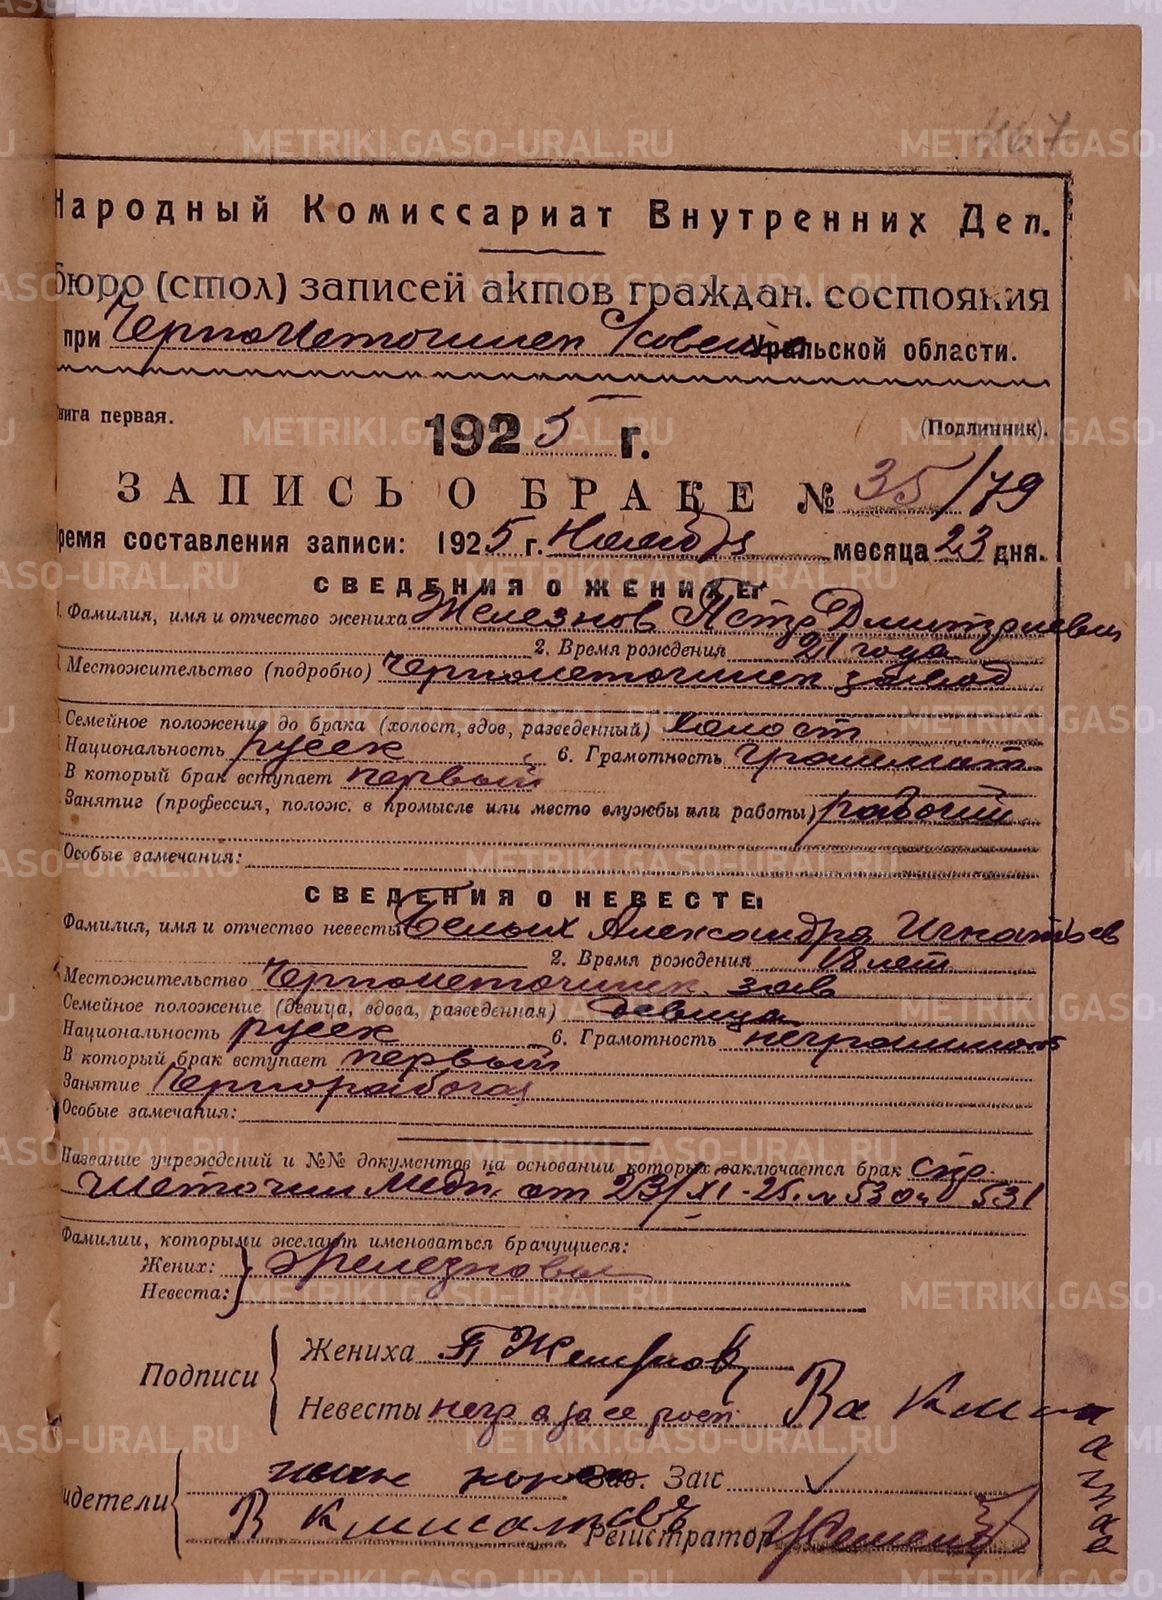 467
Народный Комиссариат Внутренних Дел.
бюро (стол) записей актов граждан. состояния
при Черноисточинск Уральской области.
нига первая.
1925 г.
(Подлинник).
ЗАПИСЬ О БРАКЕ № 35/79
ремя составления записи: 1925 г. Ноября месяца 23 дня.
СВЕДЕНИЯ О ЖЕНИХЕ:
1. Фамилия, имя и отчество жениха Железнов Петр Дмитриевич
2. Время рождения 21 года
Местожительство (подробно) Черноисточинск завод
Семейное положение до брака (холост, вдов, разведенный) холост
Национальность русск 6. Грамотность грамот
В который брак вступает первый
Занятие (профессия, полож. в промысле или место службы или работы) рабочий
Особые замечания:
СВЕДЕНИЯ О НЕВЕСТЕ:
Фамилия, имя и отчество невесты Белых Александра Игнатьев
2. Время рождения 18 лет
Местожительство Черноисточинк. зав
Семейное положение (девица, вдова, разведенная) девица
Национальность русск 6. Грамотность неграмот
В который брак вступает первый
Занятие Чернорабочая
Особые замечания:
Название учреждений и №№ документов на основании которых заключается брак спр.
Источин Медп. от 23/XI-25. № 530 и 531
Фамилии, которыми желают именоваться брачущиеся:
Жених: Железновы
Невеста:
Подписи
Жениха П Железнов
Невесты негр а за ееросп
Зав. Загс
идетели
Регистратор
METRIKI.GASO-URAL.RU